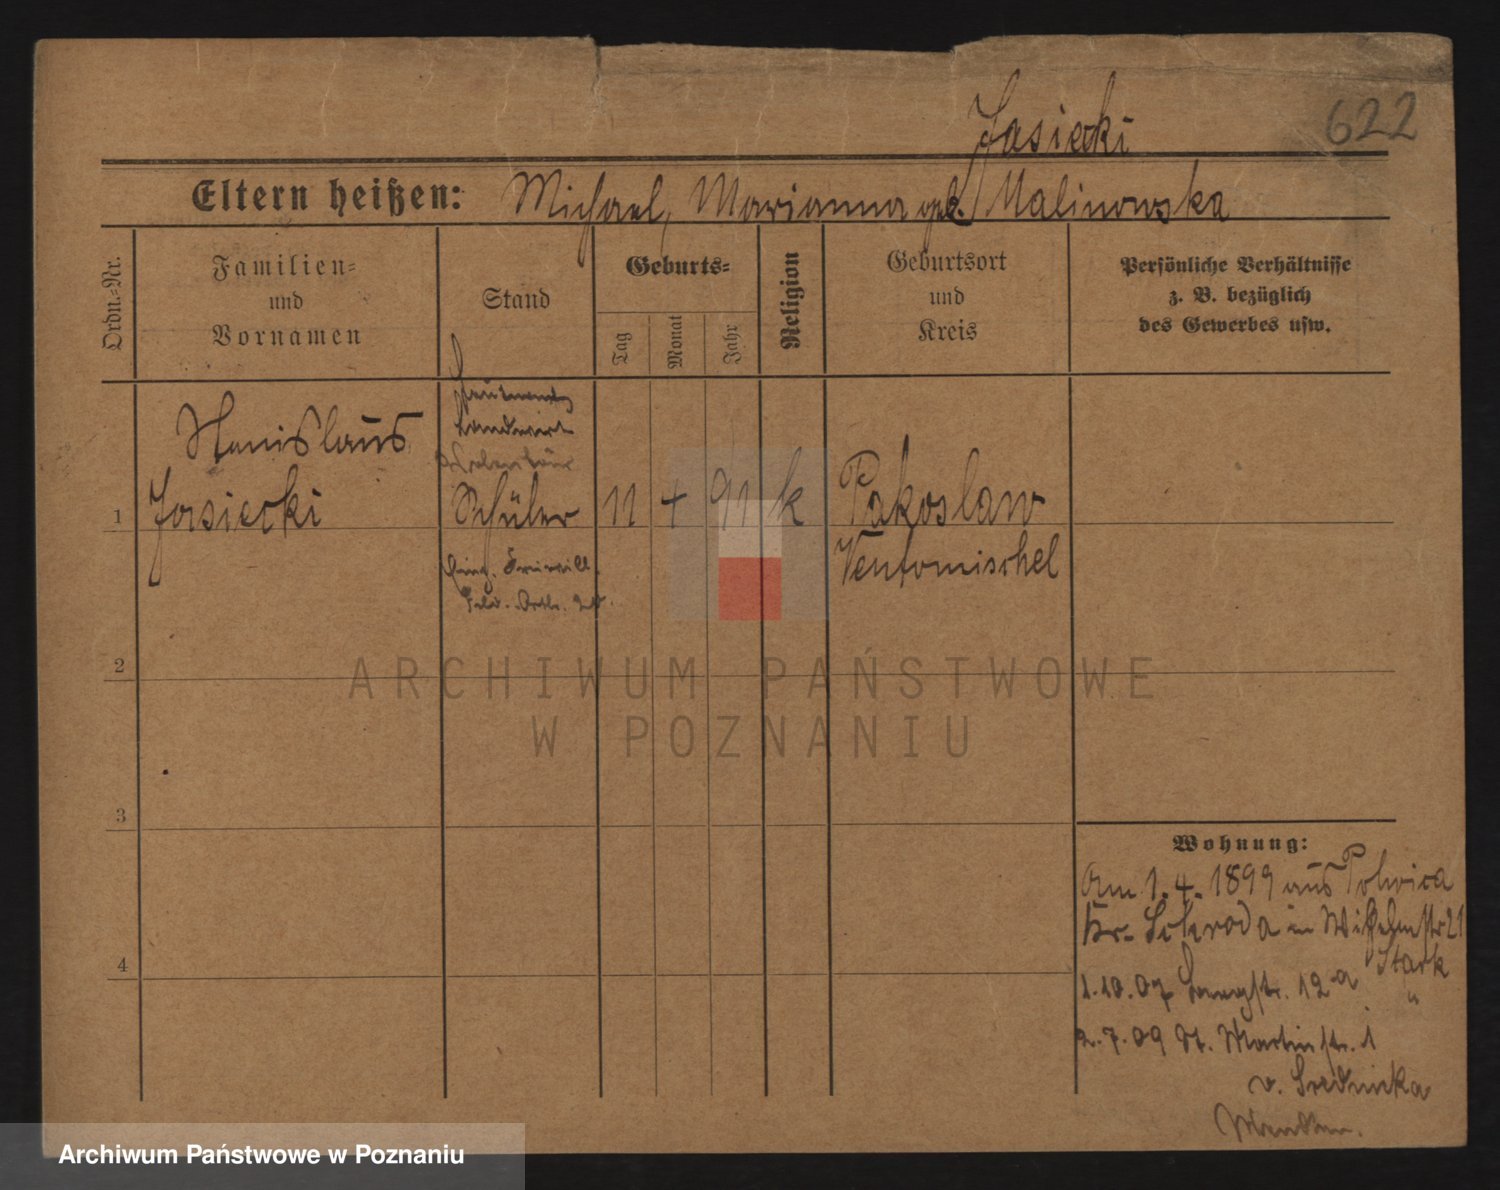 622
Jasiecki
Eltern heißen: Michael, Marianna geb. Malinowska
Ordn.=Nr.
Familien=
und
Vornamen
Stand
Geburts=
Tag
Monat
Jahr
Religion
Geburtsort
und
Kreis
Persönliche Verhältnisse
z. B. bezüglich
des Gewerbes usw.
Landwirt
Stanislaus
1 Jasiecki Schüler 11 4 91 k Pakoslaw
Neutomischel
ARCHIWUM PAŃSTWOWE
W POZNANIU
2
3
4
Wohnung:
Am 1.4.1899 aus Polwica
Kr. Schroda in Wilhelmstr 21
Stark
1.10.07 Langstr. 12a "
2.7.09 St. Martinstr. 1
v. Srednicka
Archiwum Państwowe w Poznaniu